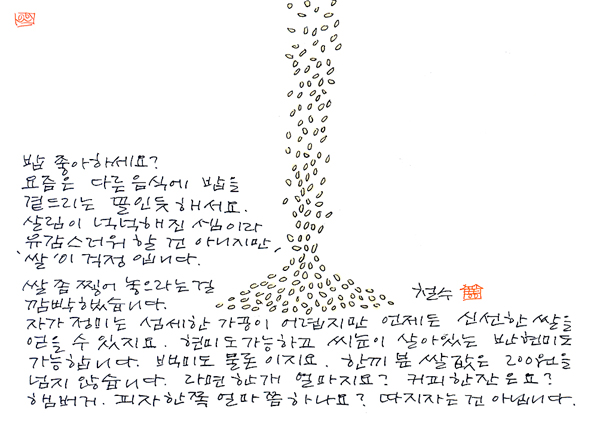 밥 좋아하세요?
요즘은 다른 음식에 밥을
곁드리는 꼴인듯 해서요.
살림이 넉넉해진 셈이라
유감스러워 할 건 아니지만,
'쌀'이 걱정 입니다.
쌀 좀 찧어 놓으라는걸
깜빡했습니다.
철수
자가 정미는 섬세한 가공이 어렵지만 언제든 신선한 쌀을
얻을 수 있지요. 현미도가능하고 씨눈이 살아있는 반현미도
가능합니다. 백미도 물론 이지요. 한끼 분 쌀값은 200원을
넘지 않습니다. 라면한개 얼마지요? 커피한잔은요?
햄버거. 피자한쪽 얼마쯤하나요? 따지자는건 아닙니다.